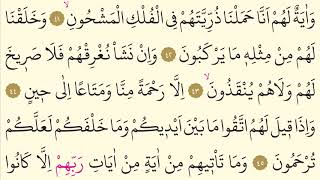 وَاٰيَةٌ لَهُمْ اَنَّا حَمَلْنَا ذُرِّيَّتَهُمْ فِى الْفُلْكِ الْمَشْحُونِۙ ﴿٤١﴾ وَخَلَقْنَا
لَهُمْ مِنْ مِثْلِه۪ مَا يَرْكَبُونَ ﴿٤٢﴾ وَاِنْ نَشَأْ نُغْرِقْهُمْ فَلَا صَر۪يخَ
لَهُمْ وَلَا هُمْ يُنْقَذُونَۙ ﴿٤٣﴾ اِلَّا رَحْمَةً مِنَّا وَمَتَاعًا اِلٰى ح۪ينٍ ﴿٤٤﴾
وَاِذَا ق۪يلَ لَهُمُ اتَّقُوا مَا بَيْنَ اَيْد۪يكُمْ وَمَا خَلْفَكُمْ لَعَلَّكُمْ
تُرْحَمُونَ ﴿٤٥﴾ وَمَا تَأْت۪يهِمْ مِنْ اٰيَةٍ مِنْ اٰيَاتِ رَبِّهِمْ اِلَّا كَانُوا